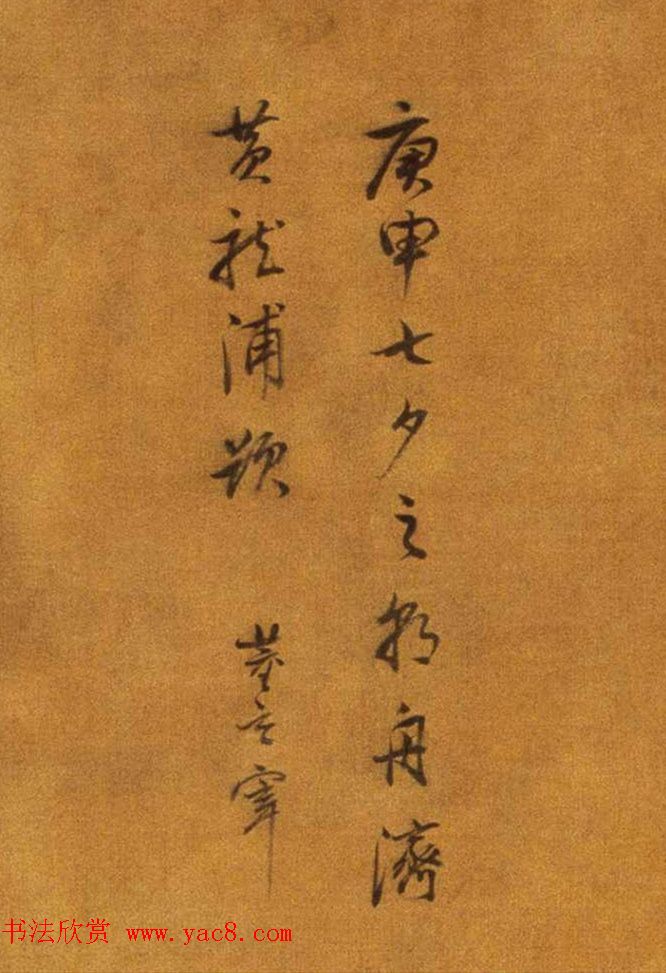 庚申七夕之朝舟濟
黃龍浦題
董玄宰
书法欣赏 www.yac8.com